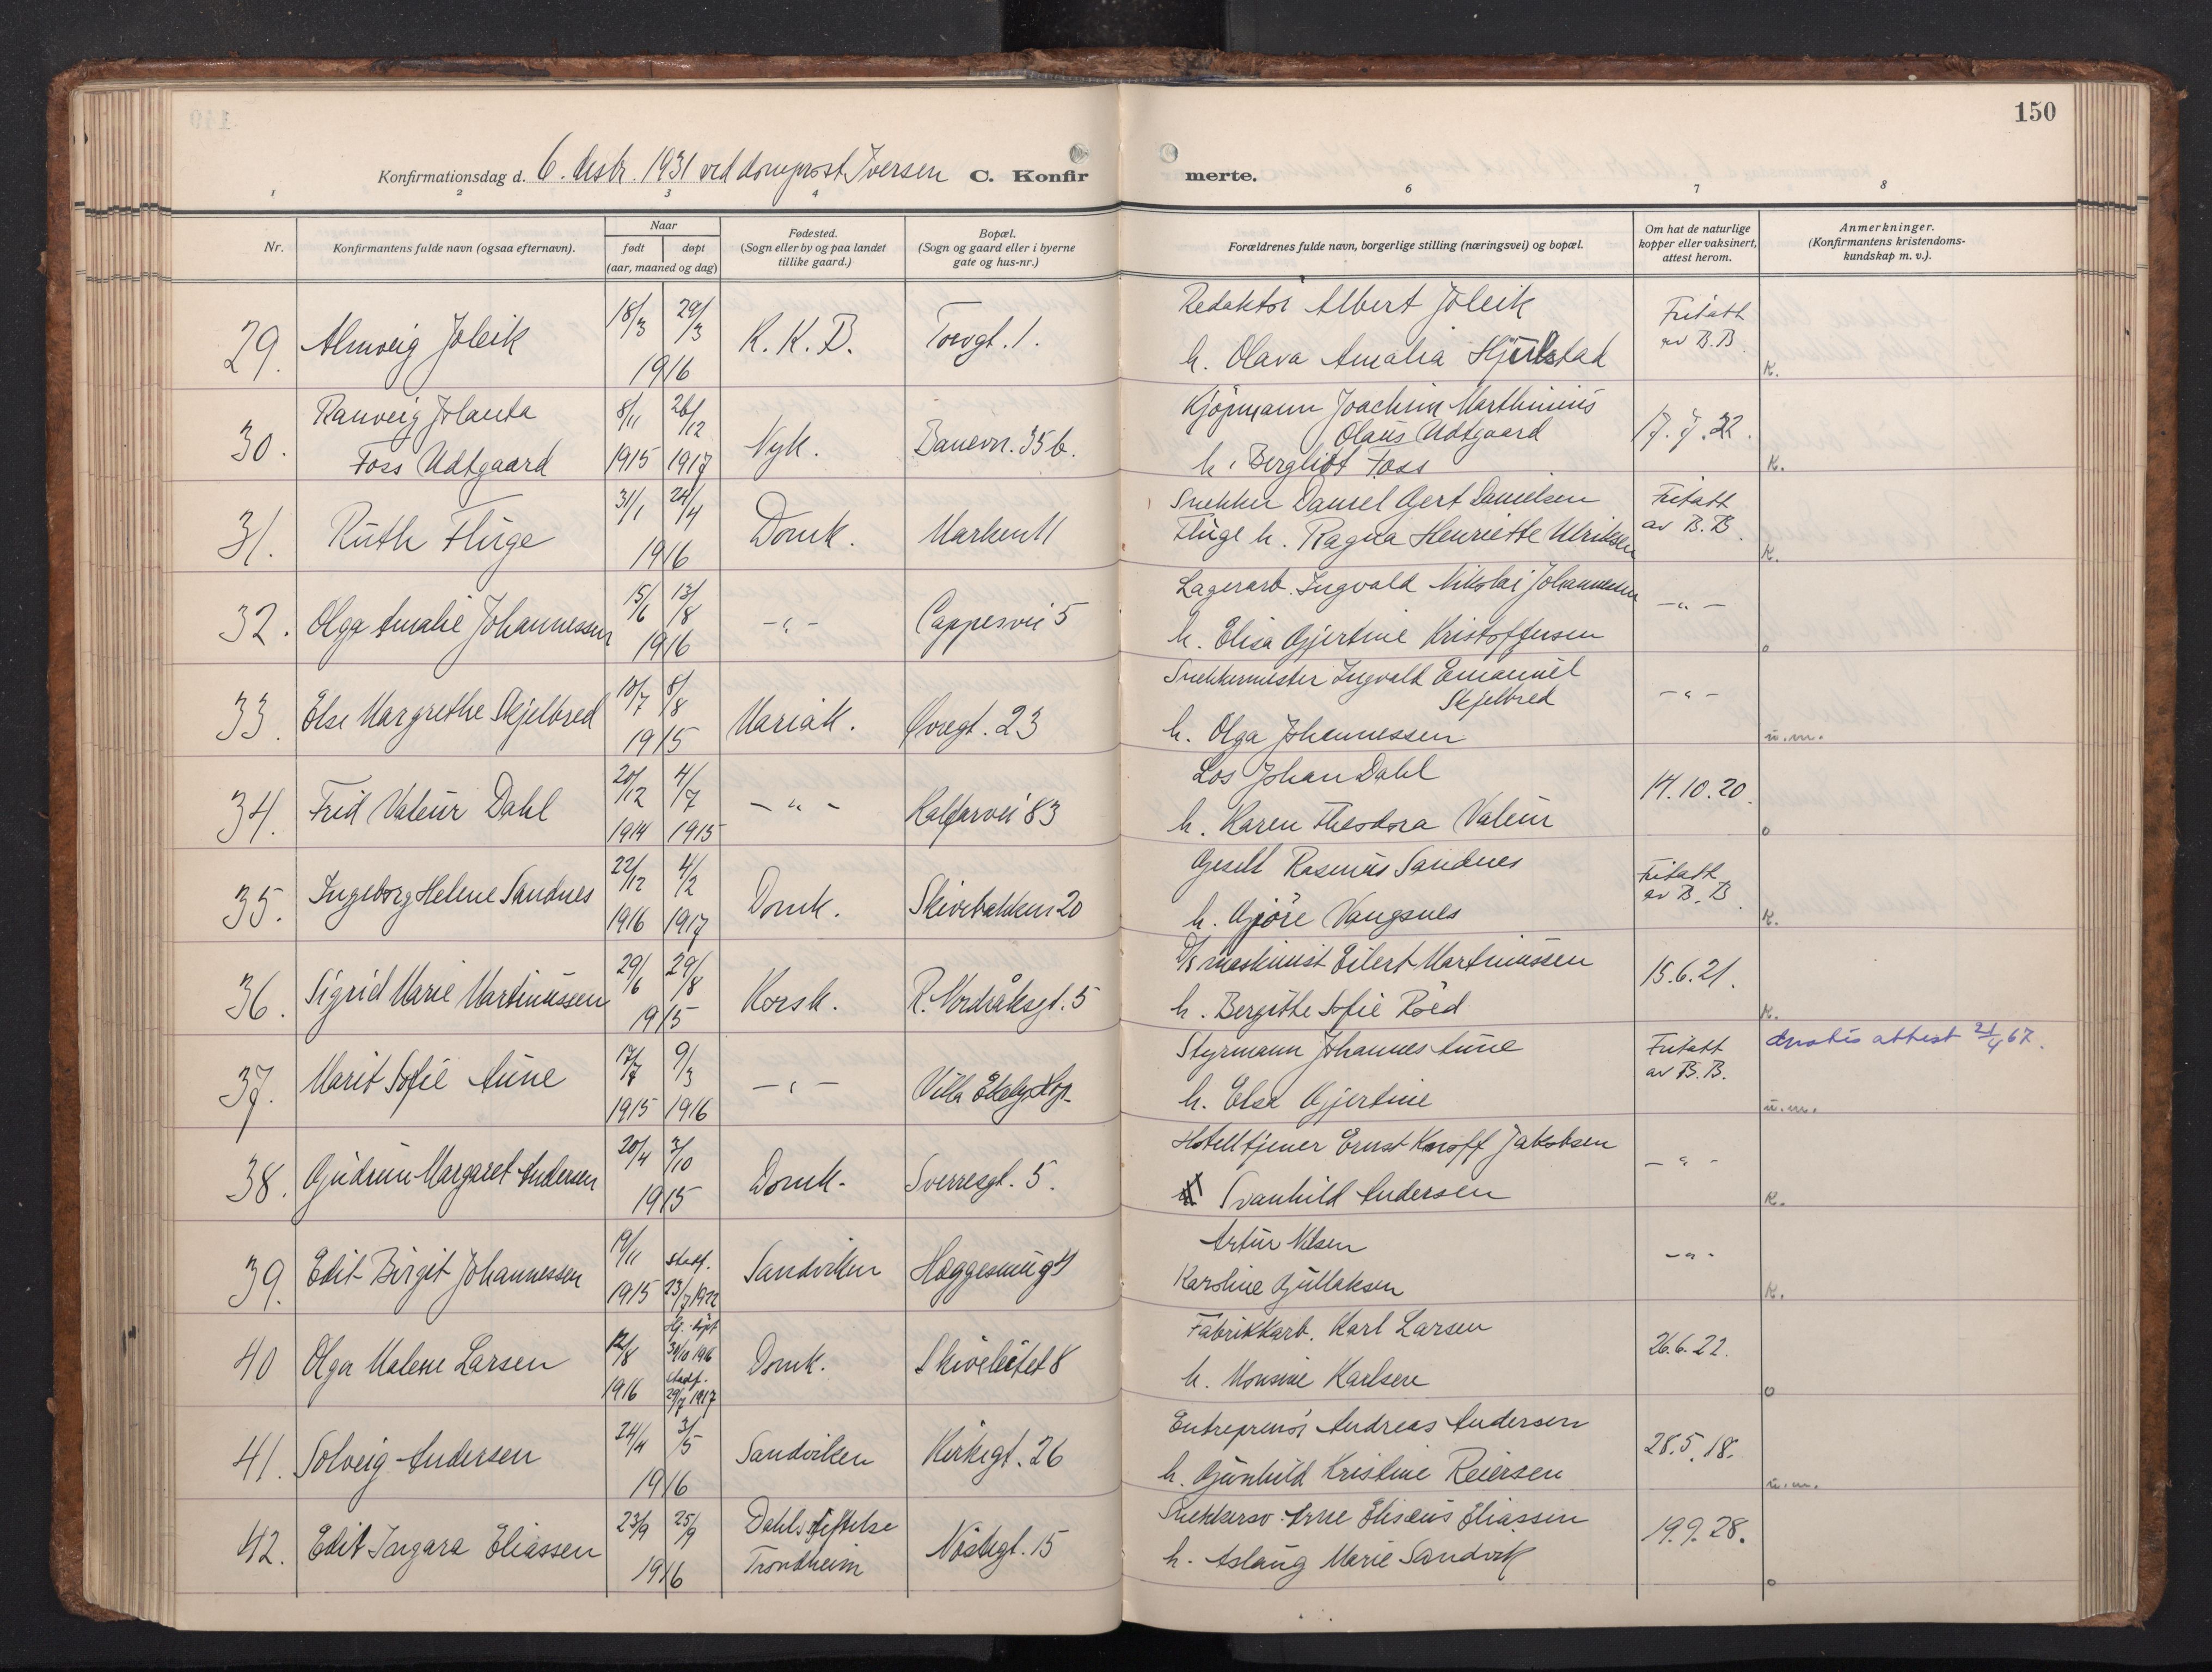 150
Konfirmationsdag d. 6. desbr. 1931 ved domprost Iversen C. Konfirmerte.
1 2 3 4 6 7 8
Nr.
Konfirmantens fulde navn (ogsaa efternavn).
Naar
født døpt
(aar, maaned og dag)
Fødested.
(Sogn eller by og paa landet
tillike gaard.)
Bopæl.
(Sogn og gaard eller i byerne
gate og hus-nr.)
Forældrenes fulde navn, borgerlige stilling (næringsvei) og bopæl.
Om hat de naturlige
kopper eller vaksinert,
attest herom.
Anmerkninger.
(Konfirmantens kristendoms-
kundskap m. v.).
29. Almveig Joleik 18/3 29/3 1916 K. K. B. Torvgt. 1.
Redaktør Albert Joleik
h. Olava Amalia Hjulstad
Fritatt
av B.B.
K.
30. Ranveig Jolanta
Foss Udtgaard 8/11 1915 26/12 1917 Nyk. Banevn. 35 b.
Kjøpmann Joachim Marthinius
Olaus Udtgaard
h. Bergliot Foss
17.7.22.
K.
31. Ruth Fluge 31/1 24/4 1916 Domk. Marken 11
Snekker Daniel Gert Danielsen
Fluge h. Ragna Henriette Ulriksen
Fritatt
av B.B.
K.
32. Olga Amalie Johannessen 15/6 13/8 1916 -"- Cappesvei 5
Lagerarb. Ingvald Nikolai Johannessen
h. Elisa Gjertine Kristoffersen
-"-
o
33. Else Margrethe Skjelbred 10/7 8/8 1915 Mariak. Øvregt. 23
Snekkermester Ingvald Emanuel
Skjelbred
h. Olga Johannessen
-"-
u.m.
34. Frid Valeur Dahl 20/12 1914 4/7 1915 -"- Kalfarvei 83
Los Johan Dahl
h. Karen Theodora Valeur
14.10.20.
o
35. Ingeborg Helene Sandnes 22/12 1916 4/2 1917 Domk. Skivebakken 20
Rasmus Sandnes
h. Gjøre Vangsnes
Fritatt
av B.B.
K.
36. Sigrid Marie Martinussen 29/6 29/8 1915 Korsk. R. Nordråksgt. 5
D/s maskinist Eilert Martinussen
h. Bergitte Sofie Røed
15.6.21.
K.
37. Marit Sofie Aune 17/7 1915 9/3 1916 -"- Villa Hop
Styrmann Johannes Aune
h. Elsa Gjertine
Fritatt
av B.B.
attest 21/4 67.
u.m.
38. Gudrun Margaret Andersen 20/4 3/10 1915 Domk. Sverresgt. 5.
Hotelltjener Ernst Knoff Jakobsen
Svanhild Andersen
-"-
K.
39. Edit Birgit Johannessen 19/11 1915 stadf. 23/7 1922 Sandviken Heggesmug 4
Artur Nilsen
Karoline Gullaksen
-"-
K.
40 Olga Malene Larsen 12/8 1916 Hj. døpt 30/10 1916 stadf. 29/7 1917 Domk. Skiveleitet 8
Fabrikkarb. Karl Larsen
h. Monsine Karlsen
26.6.22.
o
41. Solveig Andersen 24/4 3/5 1916 Sandviken Kirkegt. 26
Entreprenør Andreas Andersen
h. Gunhild Kristine Reiersen
28.5.18.
u.m.
42. Edit Ingara Eliassen 23/9 25/9 1916 Dahls stiftelse
Trondheim Nøstegt. 15
Snekkersv. Arne Eliseus Eliassen
h. Aslaug Marie Sandvik
19.9.28.
o